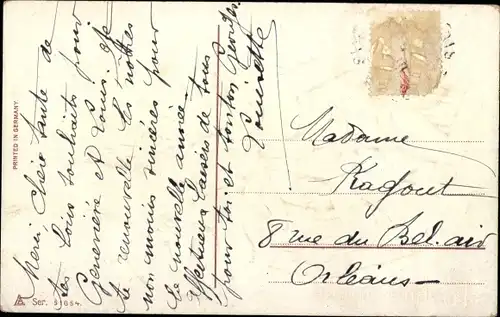 Merci chère tante de
tes bons souhaits pour
Geneviève et Louis. Je
te renouvelle les nôtres
non moins sincères pour
la nouvelle année.
Affectueux baisers de tous
pour toi et tonton Georges.
Louisette
Madame
Ragout
8 rue du Bel-air
Orléans
PRINTED IN GERMANY
Ser. 31654.